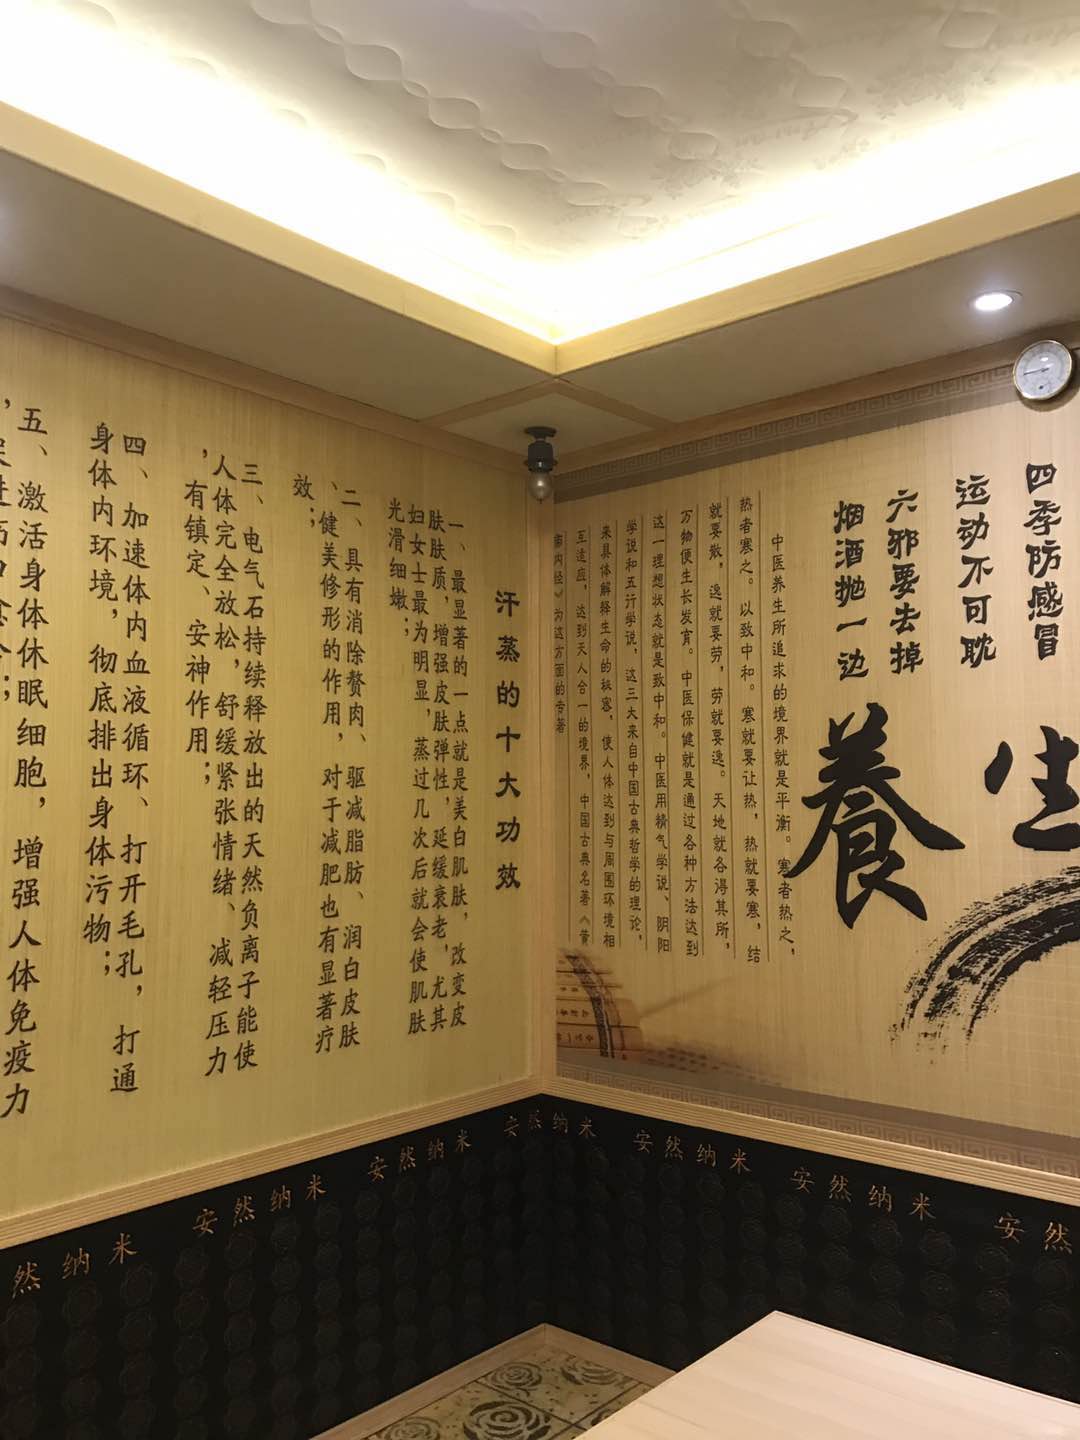 四季防感冒
运动不可耽
六邪要去掉
烟酒抛一边
生
養
中医养生所追求的境界就是平衡。寒者热之，
热者寒之。以致中和。寒就要让热，热就要寒，结
就要散，逸就要劳，劳就要逸。天地就各得其所，
万物便生长发育。中医保健就是通过各种方法达到
这一理想状态就是致中和。中医用精气学说、阴阳
学说和五行学说，这三大来自中国古典哲学的理论，
来具体解释生命的秘密，使人体达到与周围环境相
互适应，达到天人合一的境界，中国古典名著《黄
帝内经》为这方面的专著
汗蒸的十大功效
一、最显著的一点就是美白肌肤，改变皮
肤肤质，增强皮肤弹性，延缓衰老，尤其
妇女士最为明显，蒸过几次后就会使肌肤
光滑细嫩；
二、具有消除赘肉、驱减脂肪、润白皮肤
、健美修形的作用，对于减肥也有显著疗
效；
三、电气石持续释放出的天然负离子能使
人体完全放松，舒缓紧张情绪、减轻压力
，有镇定、安神作用；
四、加速体内血液循环、打开毛孔，打通
身体内环境，彻底排出身体污物；
五、激活身体休眠细胞，增强人体免疫力
然纳米
安然纳米
安然纳米
安然纳米
安然纳米
安然纳米
安然